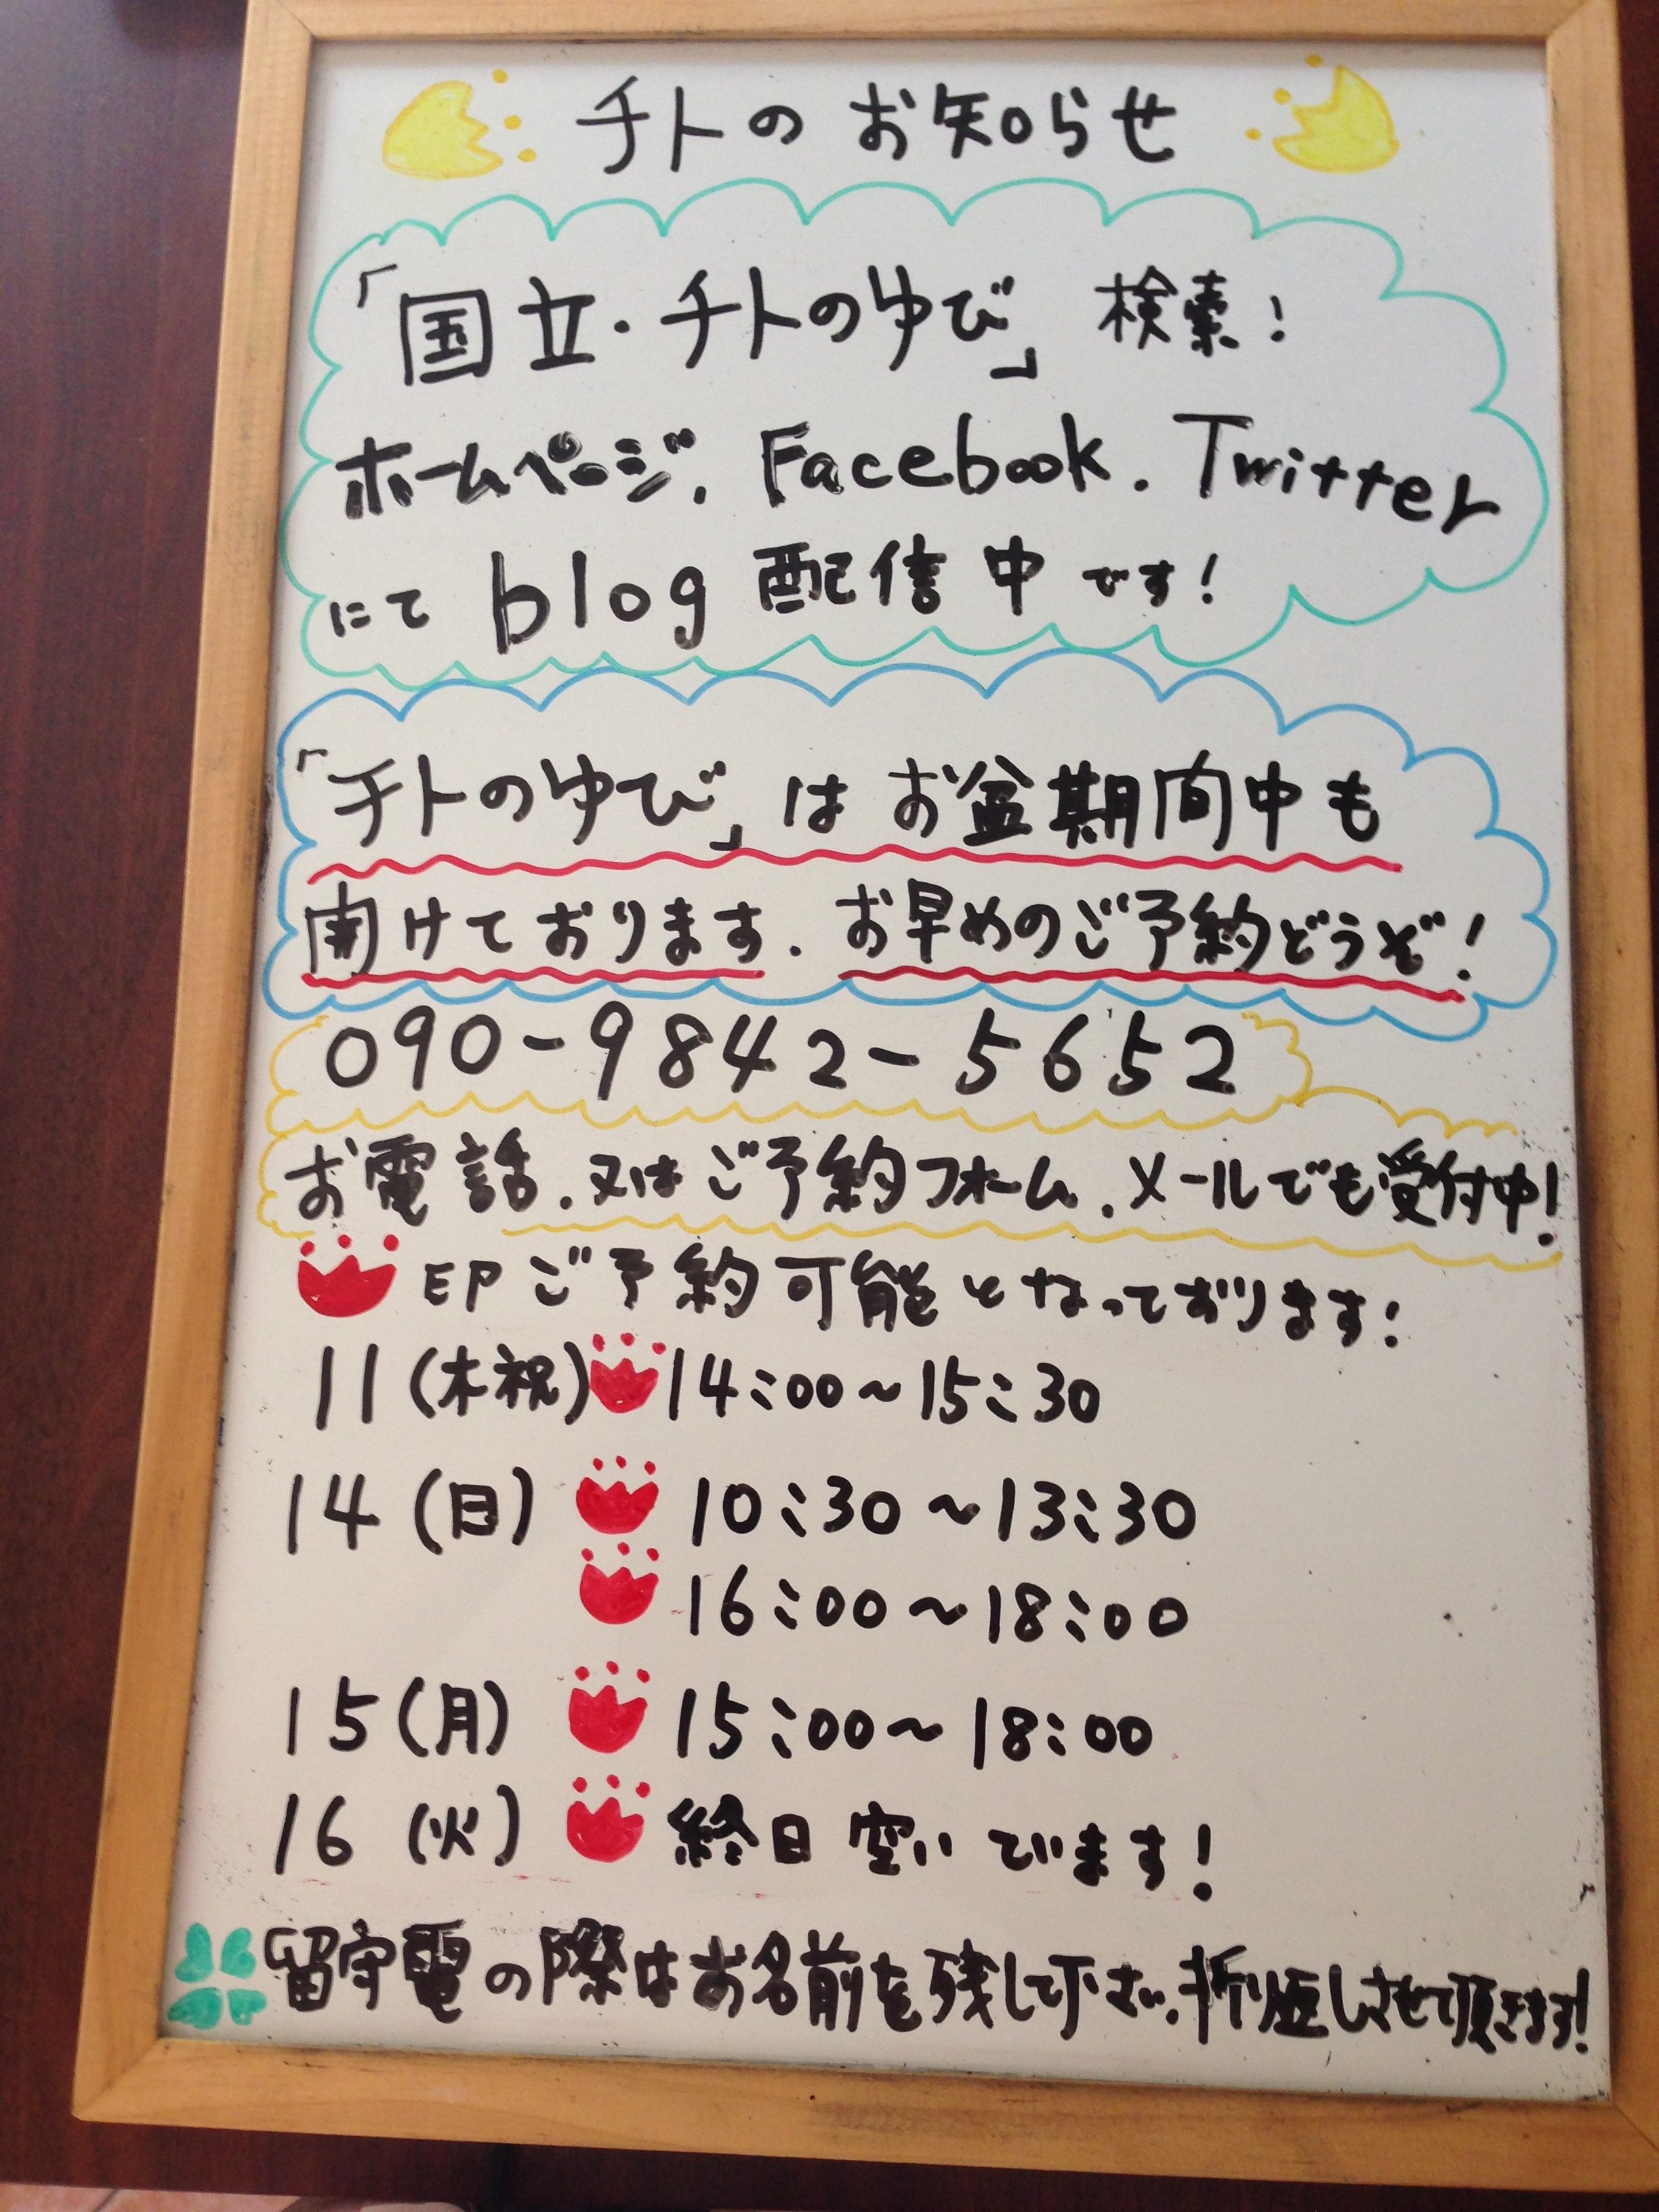 チトのお知らせ
「国立・チトのゆび」検索!
ホームページ、Facebook、Twitter
にてblog配信中です!
「チトのゆび」はお盆期間中も
開けております。お早めのご予約どうぞ!
090-9842-5652
お電話、又はご予約フォーム、メールでも受付中!
印ご予約可能となっております!
11(木祝)14:00~15:30
14(日)10:30~13:30
16:00~18:00
15(月)15:00~18:00
16(火)終日空いています!
留守電の際はお名前を残して下さい、折り返しさせて頂きます!